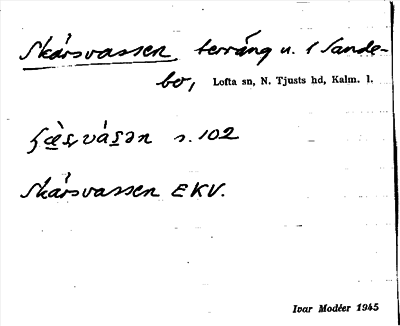 Skårsvassen, terräng u. 1 Sande-
bo, Lofta sn, N. Tjusts hd, Kalm. l.
s. 102
Skårsvassen EKV.
Ivar Modéer 1945